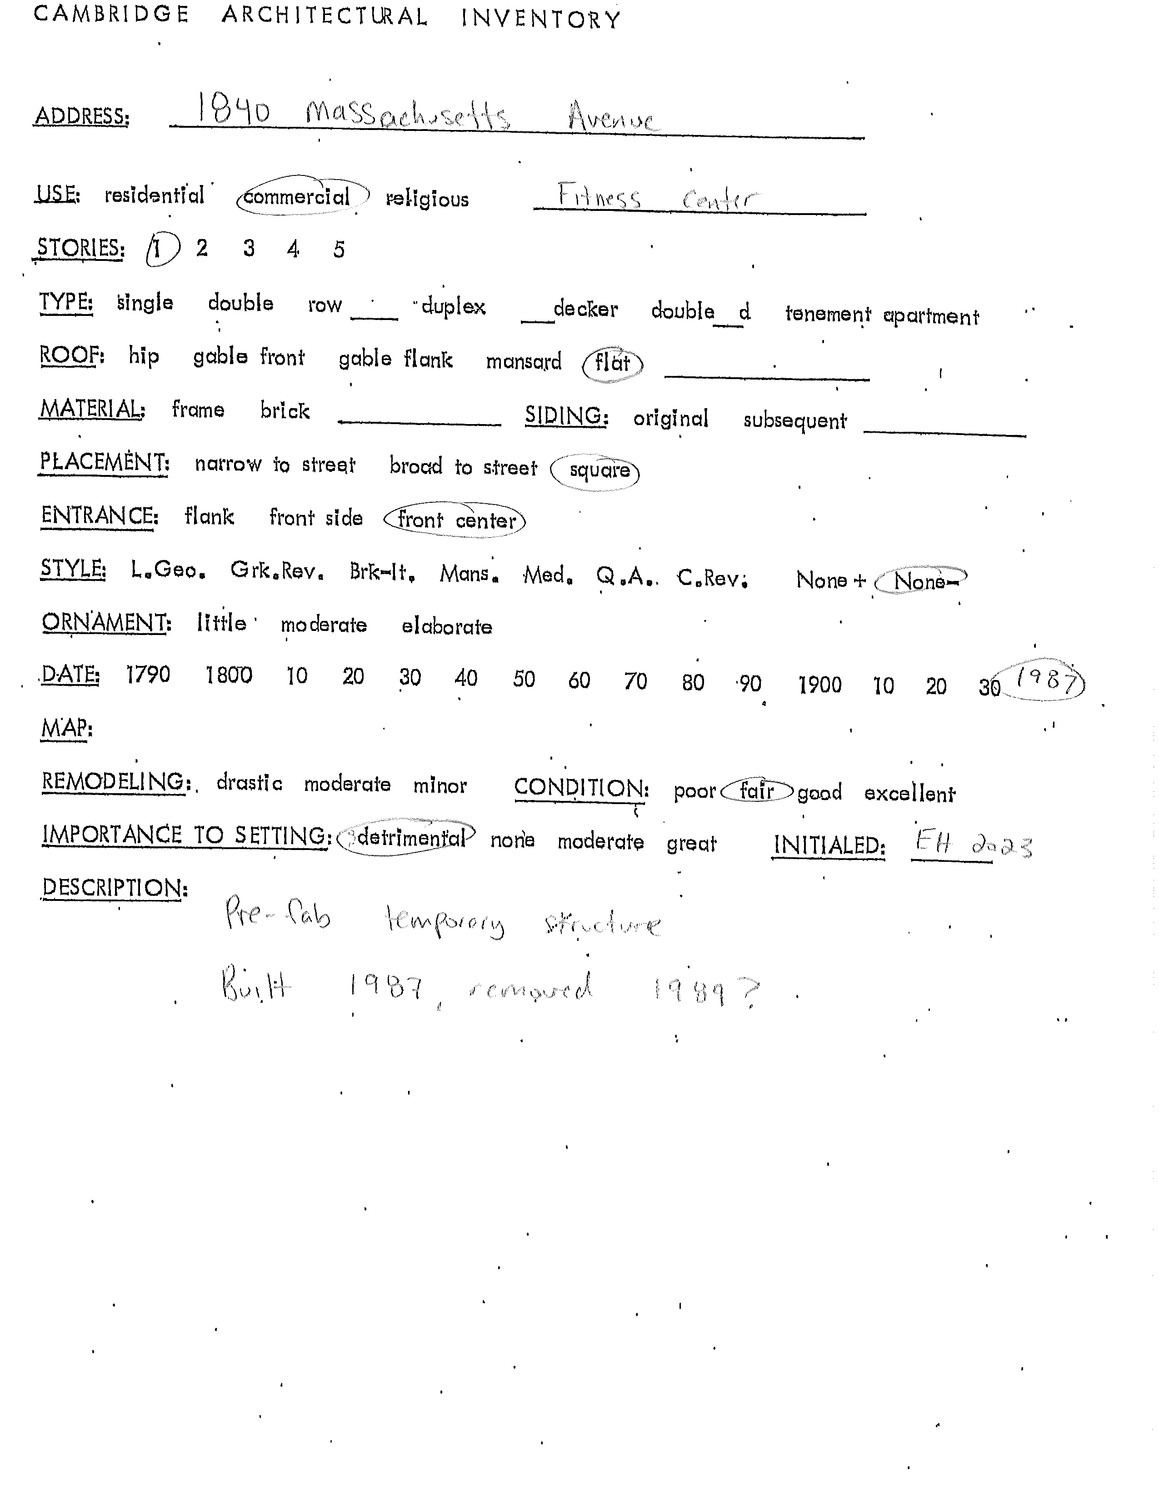 CAMBRIDGE ARCHITECTURAL INVENTORY
ADDRESS: 1840 Massachusetts Avenue
USE: residential commercial religious Fitness Center
STORIES: 1 2 3 4 5
TYPE: single double row ___ duplex ___decker double___d tenement apartment
ROOF: hip gable front gable flank mansard flat
MATERIAL: frame brick SIDING: original subsequent
PLACEMENT: narrow to street broad to street square
ENTRANCE: flank front side front center
STYLE: L.Geo. Grk.Rev. Brk-It. Mans. Med. Q.A. C.Rev. None+ None-
ORNAMENT: little moderate elaborate
DATE: 1790 1800 10 20 30 40 50 60 70 80 90 1900 10 20 30 1987
MAP:
REMODELING: drastic moderate minor CONDITION: poor fair good excellent
IMPORTANCE TO SETTING: detrimental none moderate great INITIALED: EH 2023
DESCRIPTION:
Pre-fab temporary structure
Built 1987, removed 1989?